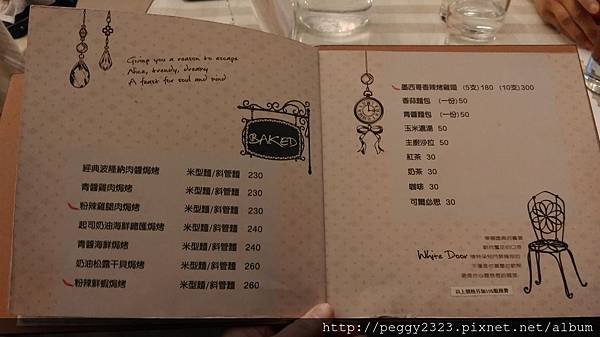 Giving you a reason to escape
Nice, trendy, dreamy
A feast for soul and mind
BAKED
經典波隆納肉醬焗烤 米型麵/斜管麵 230
青醬雞肉焗烤 米型麵/斜管麵 230
粉辣雞腿肉焗烤 米型麵/斜管麵 230
起司奶油海鮮總匯焗烤 米型麵/斜管麵 240
青醬海鮮焗烤 米型麵/斜管麵 240
奶油松露干貝焗烤 米型麵/斜管麵 260
粉辣鮮蝦焗烤 米型麵/斜管麵 260
墨西哥香辣烤雞翅 (5支) 180 (10支) 300
香蒜麵包 (一份) 50
青醬麵包 (一份) 50
玉米濃湯 50
主廚沙拉 50
紅茶 30
奶茶 30
咖啡 30
可爾必思 30
White Door
以上價格另加10%服務費
http://peggy2323.pixnet.net/album